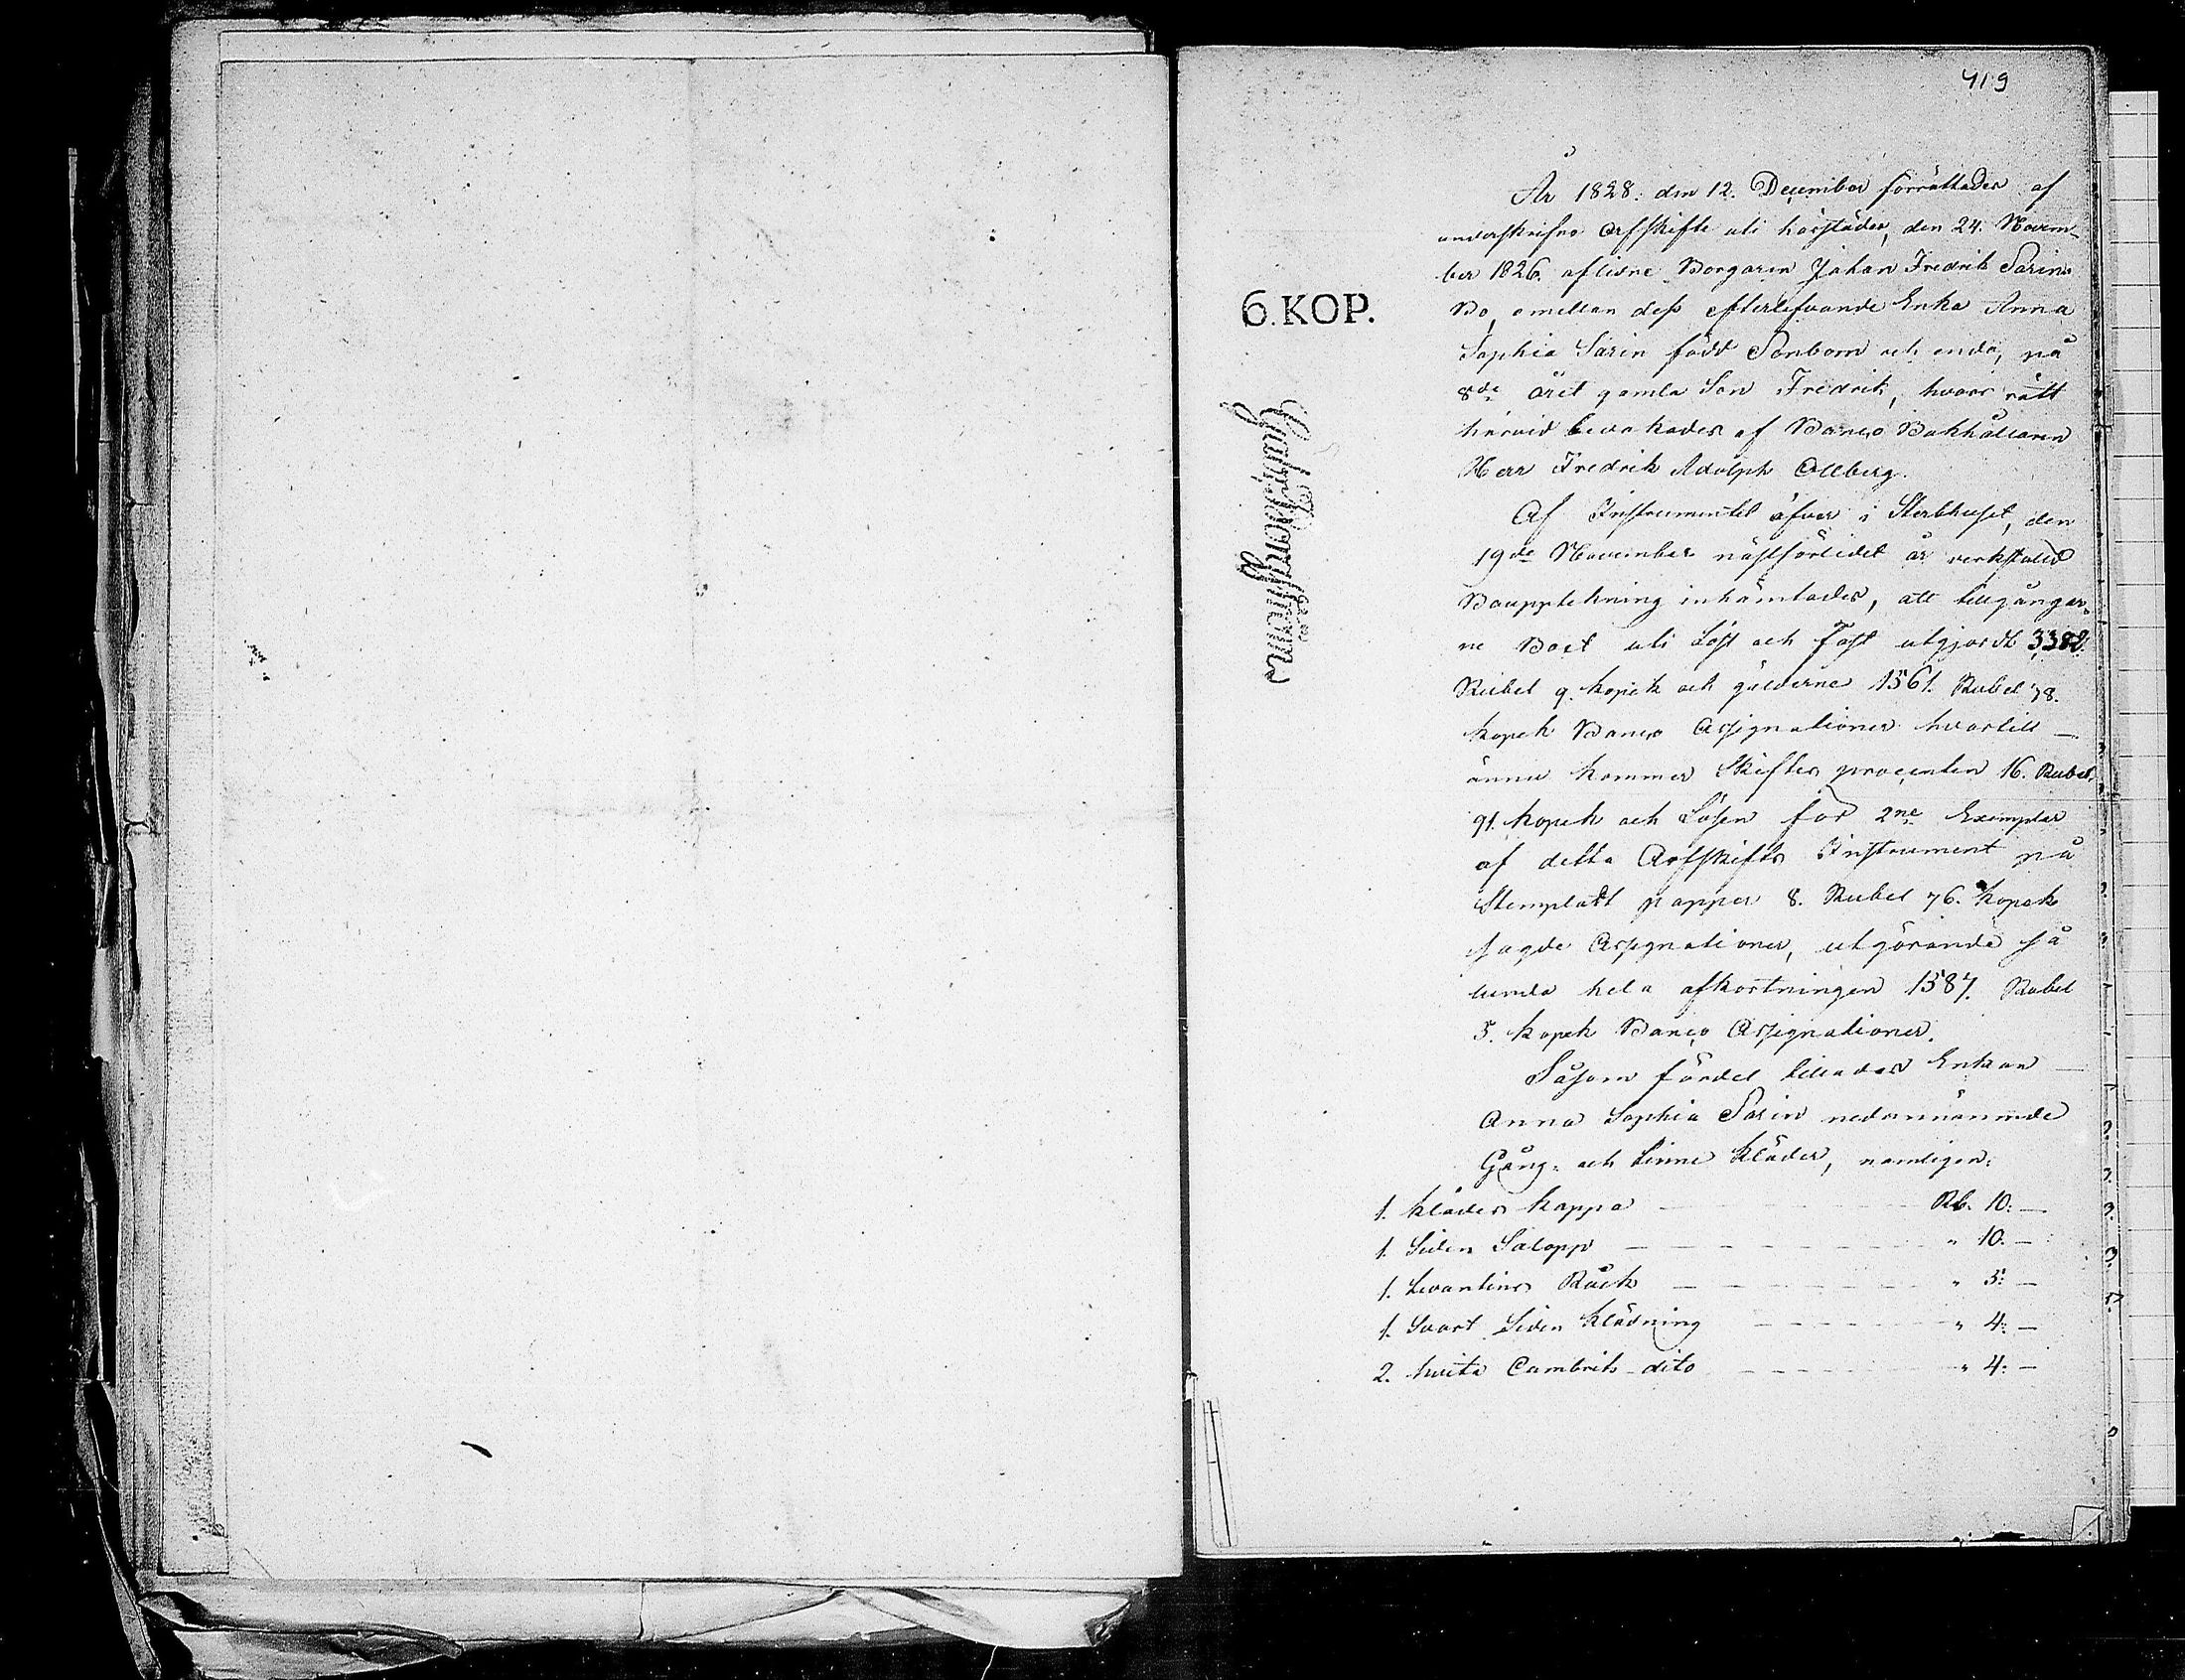 419
År 1828. den 12. December förrättades af
underskrifne Arfskifte uti härstädes, den 24. Novem-
ber 1826. aflidne Borgaren Johan Fredrik Sarins
Bo, emellan dess efterlefvande Enka Anna
Sophia Sarin född Sonbom och enda, på
8de året gamla Son Fredrik, hvars rätt
härvid bevakades af Banco Bokhållaren
Herr Fredrik Adolph Ollberg.
Af Instrumentet öfver i Sterbhuset, den
19de November nästförledet år verkstäld
Bouppteckning inhämtades, att tillgångar-
ne Boet uti Löst och Fast utgjordt 3382
Rubel 9. kopek och gälderne 1561. Rubel 38.
kopek Banco Assignationer hvartill
ännu kommer Skiftes procenten 16. Rubel
91. kopek och Lösen för 2ne Exemplar
af detta Arfskifts Instrument på
Stemplat papper 8. Rubel 76. kopek
sagde Assignationer, utgörande så
lunda hela afkortningen 1587. Rubel
5. kopek Banco Assignationer.
Såsom fördel tillades Enkan
Anna Sophia Sarin nedannämnde
Gång- och Linne kläder, nämligen:
1. klädes kappa Rb. 10: —
1. Siden Salopp " 10. —
1. Levantins Råck " 5: —
1. Svart Siden klädning " 4: —
2. hvita Cambriks dito " 4: —
6. KOP.